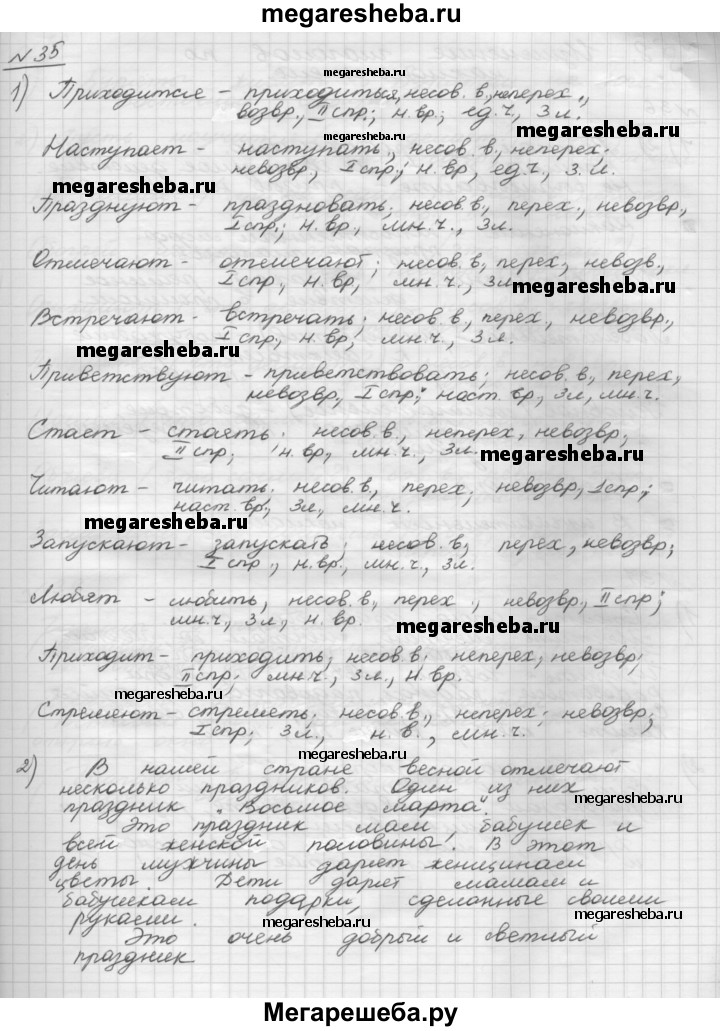 megaresheba.ru
№ 35
megaresheba.ru
1) Приходится – приходиться, несов. в., неперех.,
возвр., II спр.; н. вр.; ед. ч., 3 л.
Наступает – наступать, несов. в., неперех.
невозвр, I спр; н. вр, ед. ч., 3. л.
megaresheba.ru
Празднуют – праздновать, несов. в., перех., невозвр,
I спр.; н. вр., мн. ч., 3 л.
Отмечают – отмечают; несов. в, перех, невозв.,
I спр, н. вр, мн. ч., 3 л
megaresheba.ru
Встречают – встречать; несов. в, перех, невозвр,
I спр; н. вр., мн. ч., 3 л.
megaresheba.ru
Приветствуют – приветствовать; несов. в, перех,
невозвр, I спр; наст. вр, 3 л, мн. ч.
Стает – стаять. несов. в., неперех, невозвр,
II спр; н. вр, мн. ч., 3 л.
megaresheba.ru
Читают – читать. несов. в, перех, невозвр, I спр;
наст. вр, 3 л, мн. ч.
megaresheba.ru
Запускают – запускать; несов. в, перех, невозвр;
I спр., н. вр, мн. ч., 3 л.
Любят – любить, несов. в, перех, невозвр, II спр;
мн. ч, 3 л, н. вр.
megaresheba.ru
Приходит – приходить, несов. в. неперех, невозвр,
II спр, мн. ч., 3 л., н. вр.
megaresheba.ru
Стремеют – стреметь, несов. в., неперех; невозвр,
I спр; 3 л., н. в., мн. ч.
megaresheba.ru
2) В нашей стране весной отмечают
несколько праздников. Один из них
праздник "Восьмое марта".
megaresheba.ru
Это праздник мам, бабушек и
всей женской половины. В этот
день мужчины дарят женщинам
цветы. Дети дарят мамам и
бабушкам подарки, сделанные своими
руками.
megaresheba.ru
megaresheba.ru
Это очень добрый и светлый
праздник
Мегарешеба.ру